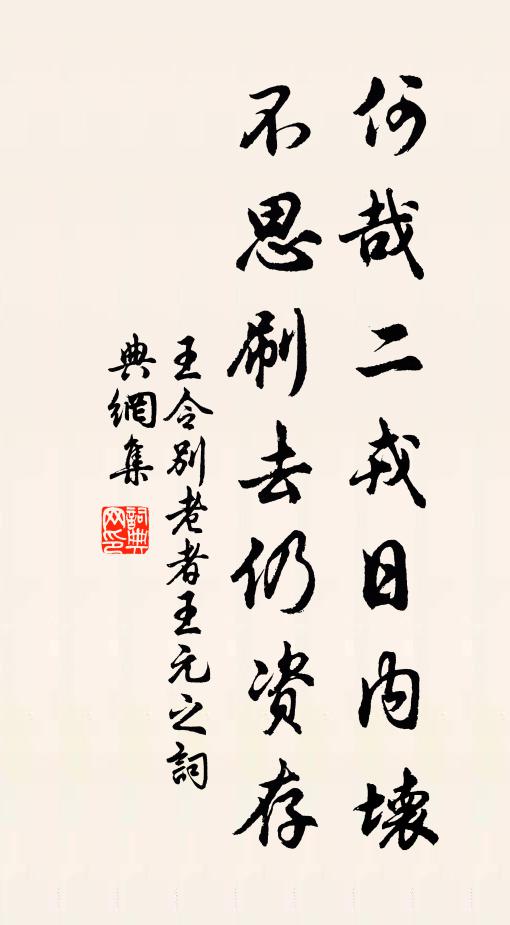 何哉二戎日内壞
不思刷去仍资存
王令别老者王元之詞
典網集
詞典网印